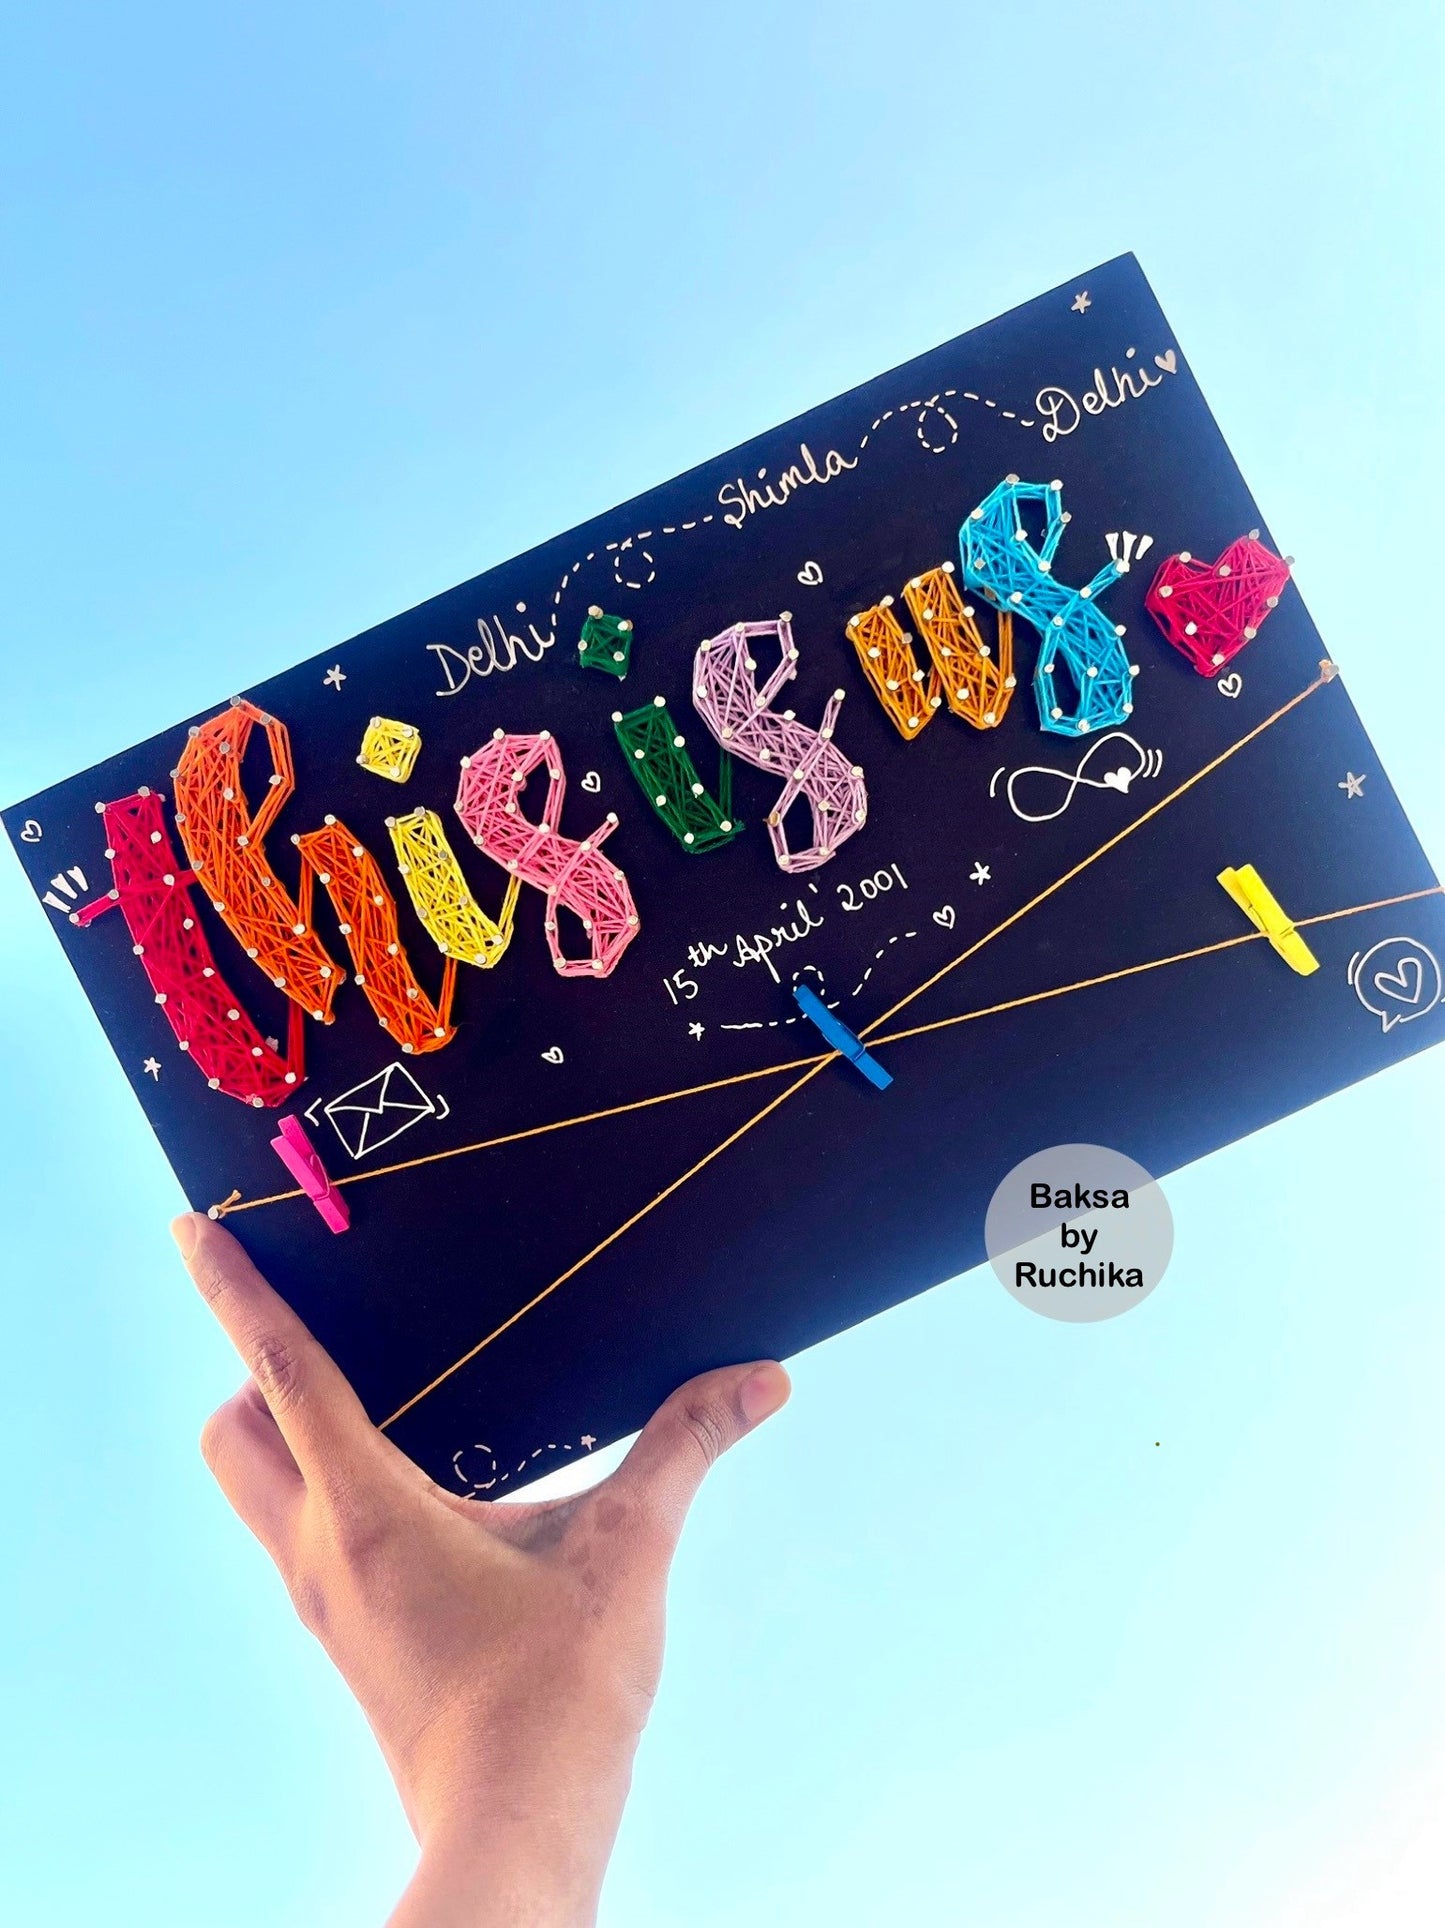 Delhi Shimla Delhi
this is us
15th April' 2001
Baksa
by
Ruchika